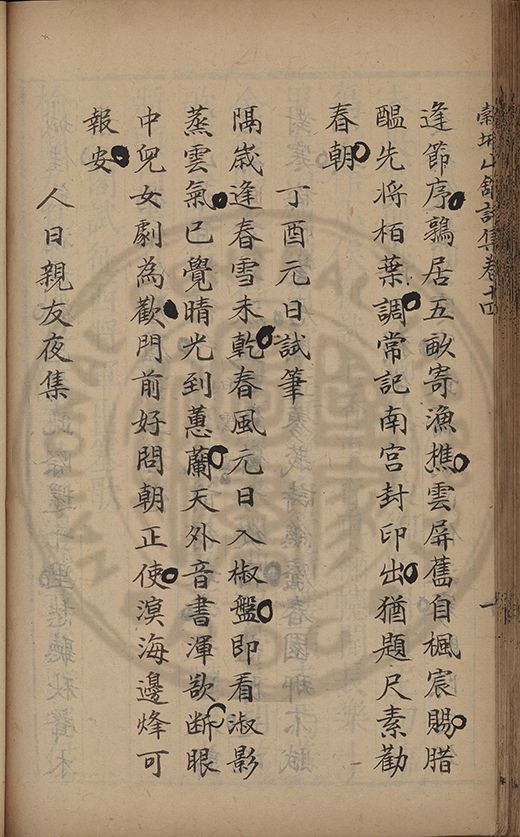 穀城山館詩集卷十四
一
逢節序鶉居五畝寄漁樵雲屏舊自楓宸賜腊
醖先将栢葉調常記南宮封印出猶題尺素勸
春朝
丁酉元日試筆
隔嵗逢春雪未乾春風元日入椒盤即看淑影
蒸雲氣已覺晴光到蕙蘭天外音書渾欲断眼
中兒女劇為歡門前好問朝正使溟海邊烽可
報安
人日親友夜集